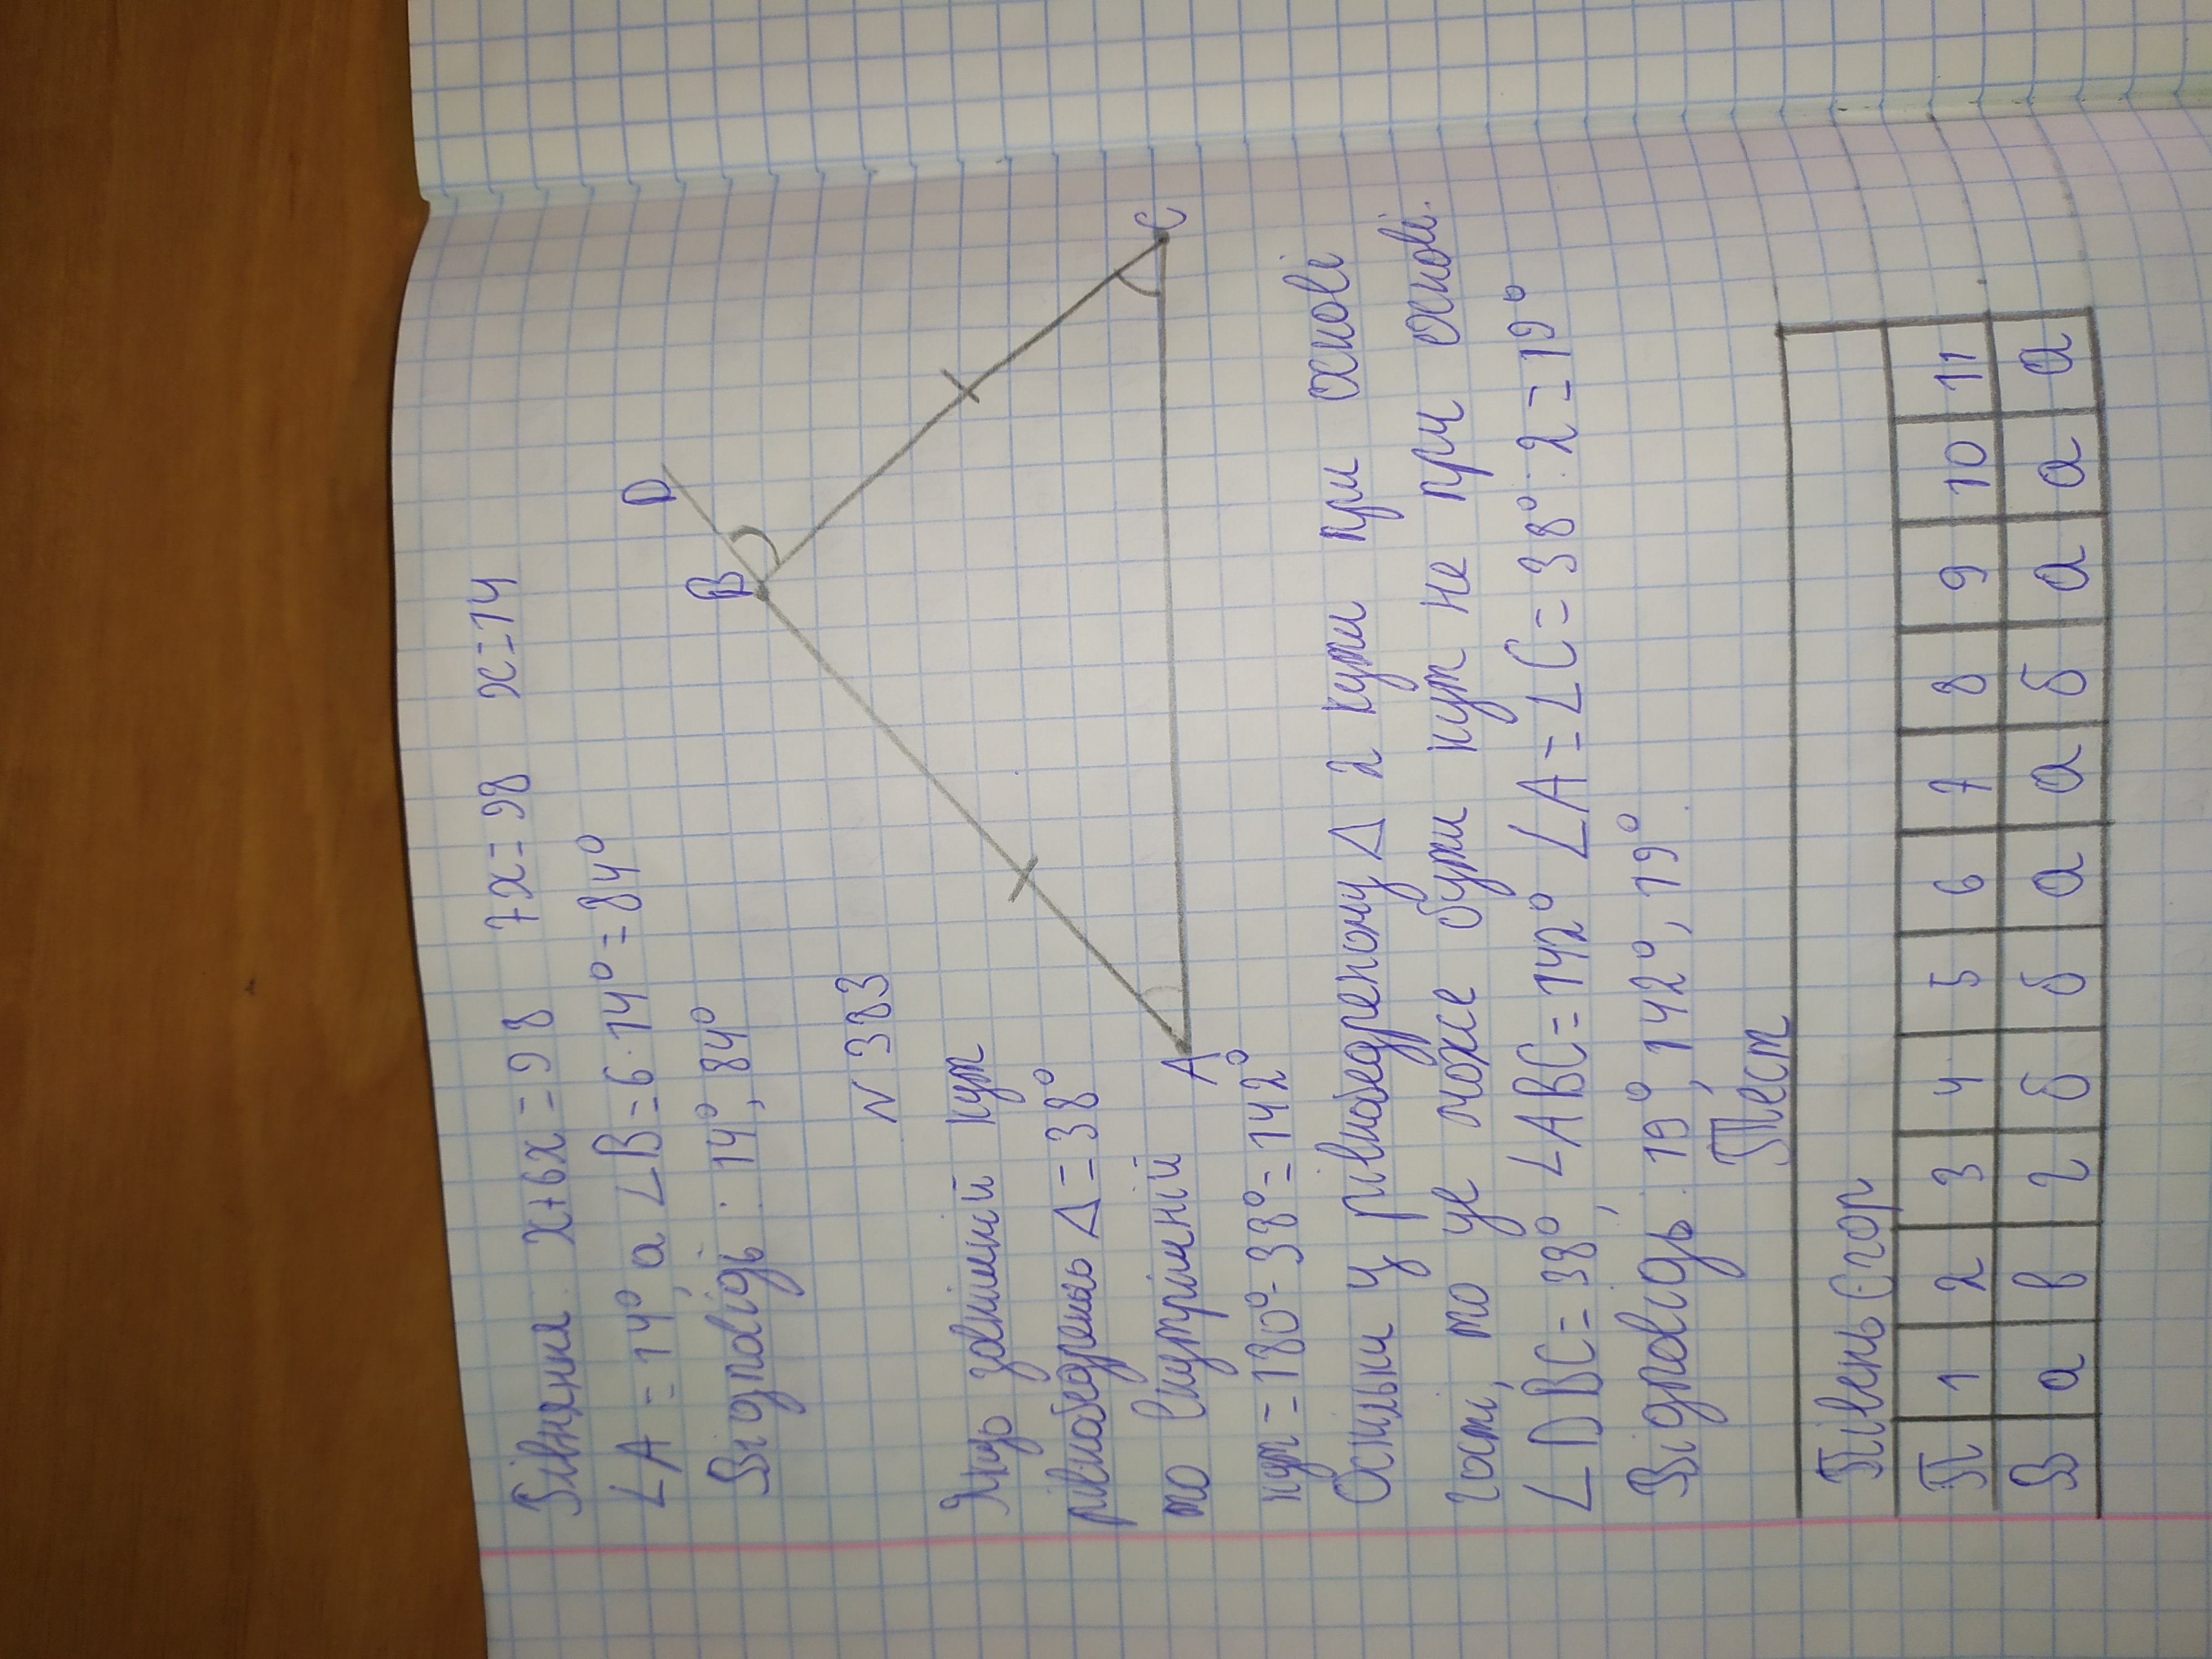 Рівняння: x+6x=98 7x=98 x=14
∠A=14°, а ∠B=6·14°=84°
Відповідь: 14°, 84°
N 383
Якщо зовнішній кут
рівнобедрень Δ=38°
то внутрішній
кут=180°-38°=142°
D
B
A
C
Оскільки у рівнобедреному Δ 2 кути при основі
гості, то це може бути кут не при основі.
∠DBC=38°, ∠ABC=142° ∠A=∠C=38°:2=19°
Відповідь: 19°, 142°, 19°
Тест
Півень Єгор
П 1 2 3 4 5 6 7 8 9 10 11
В а в г б б а а б а а а